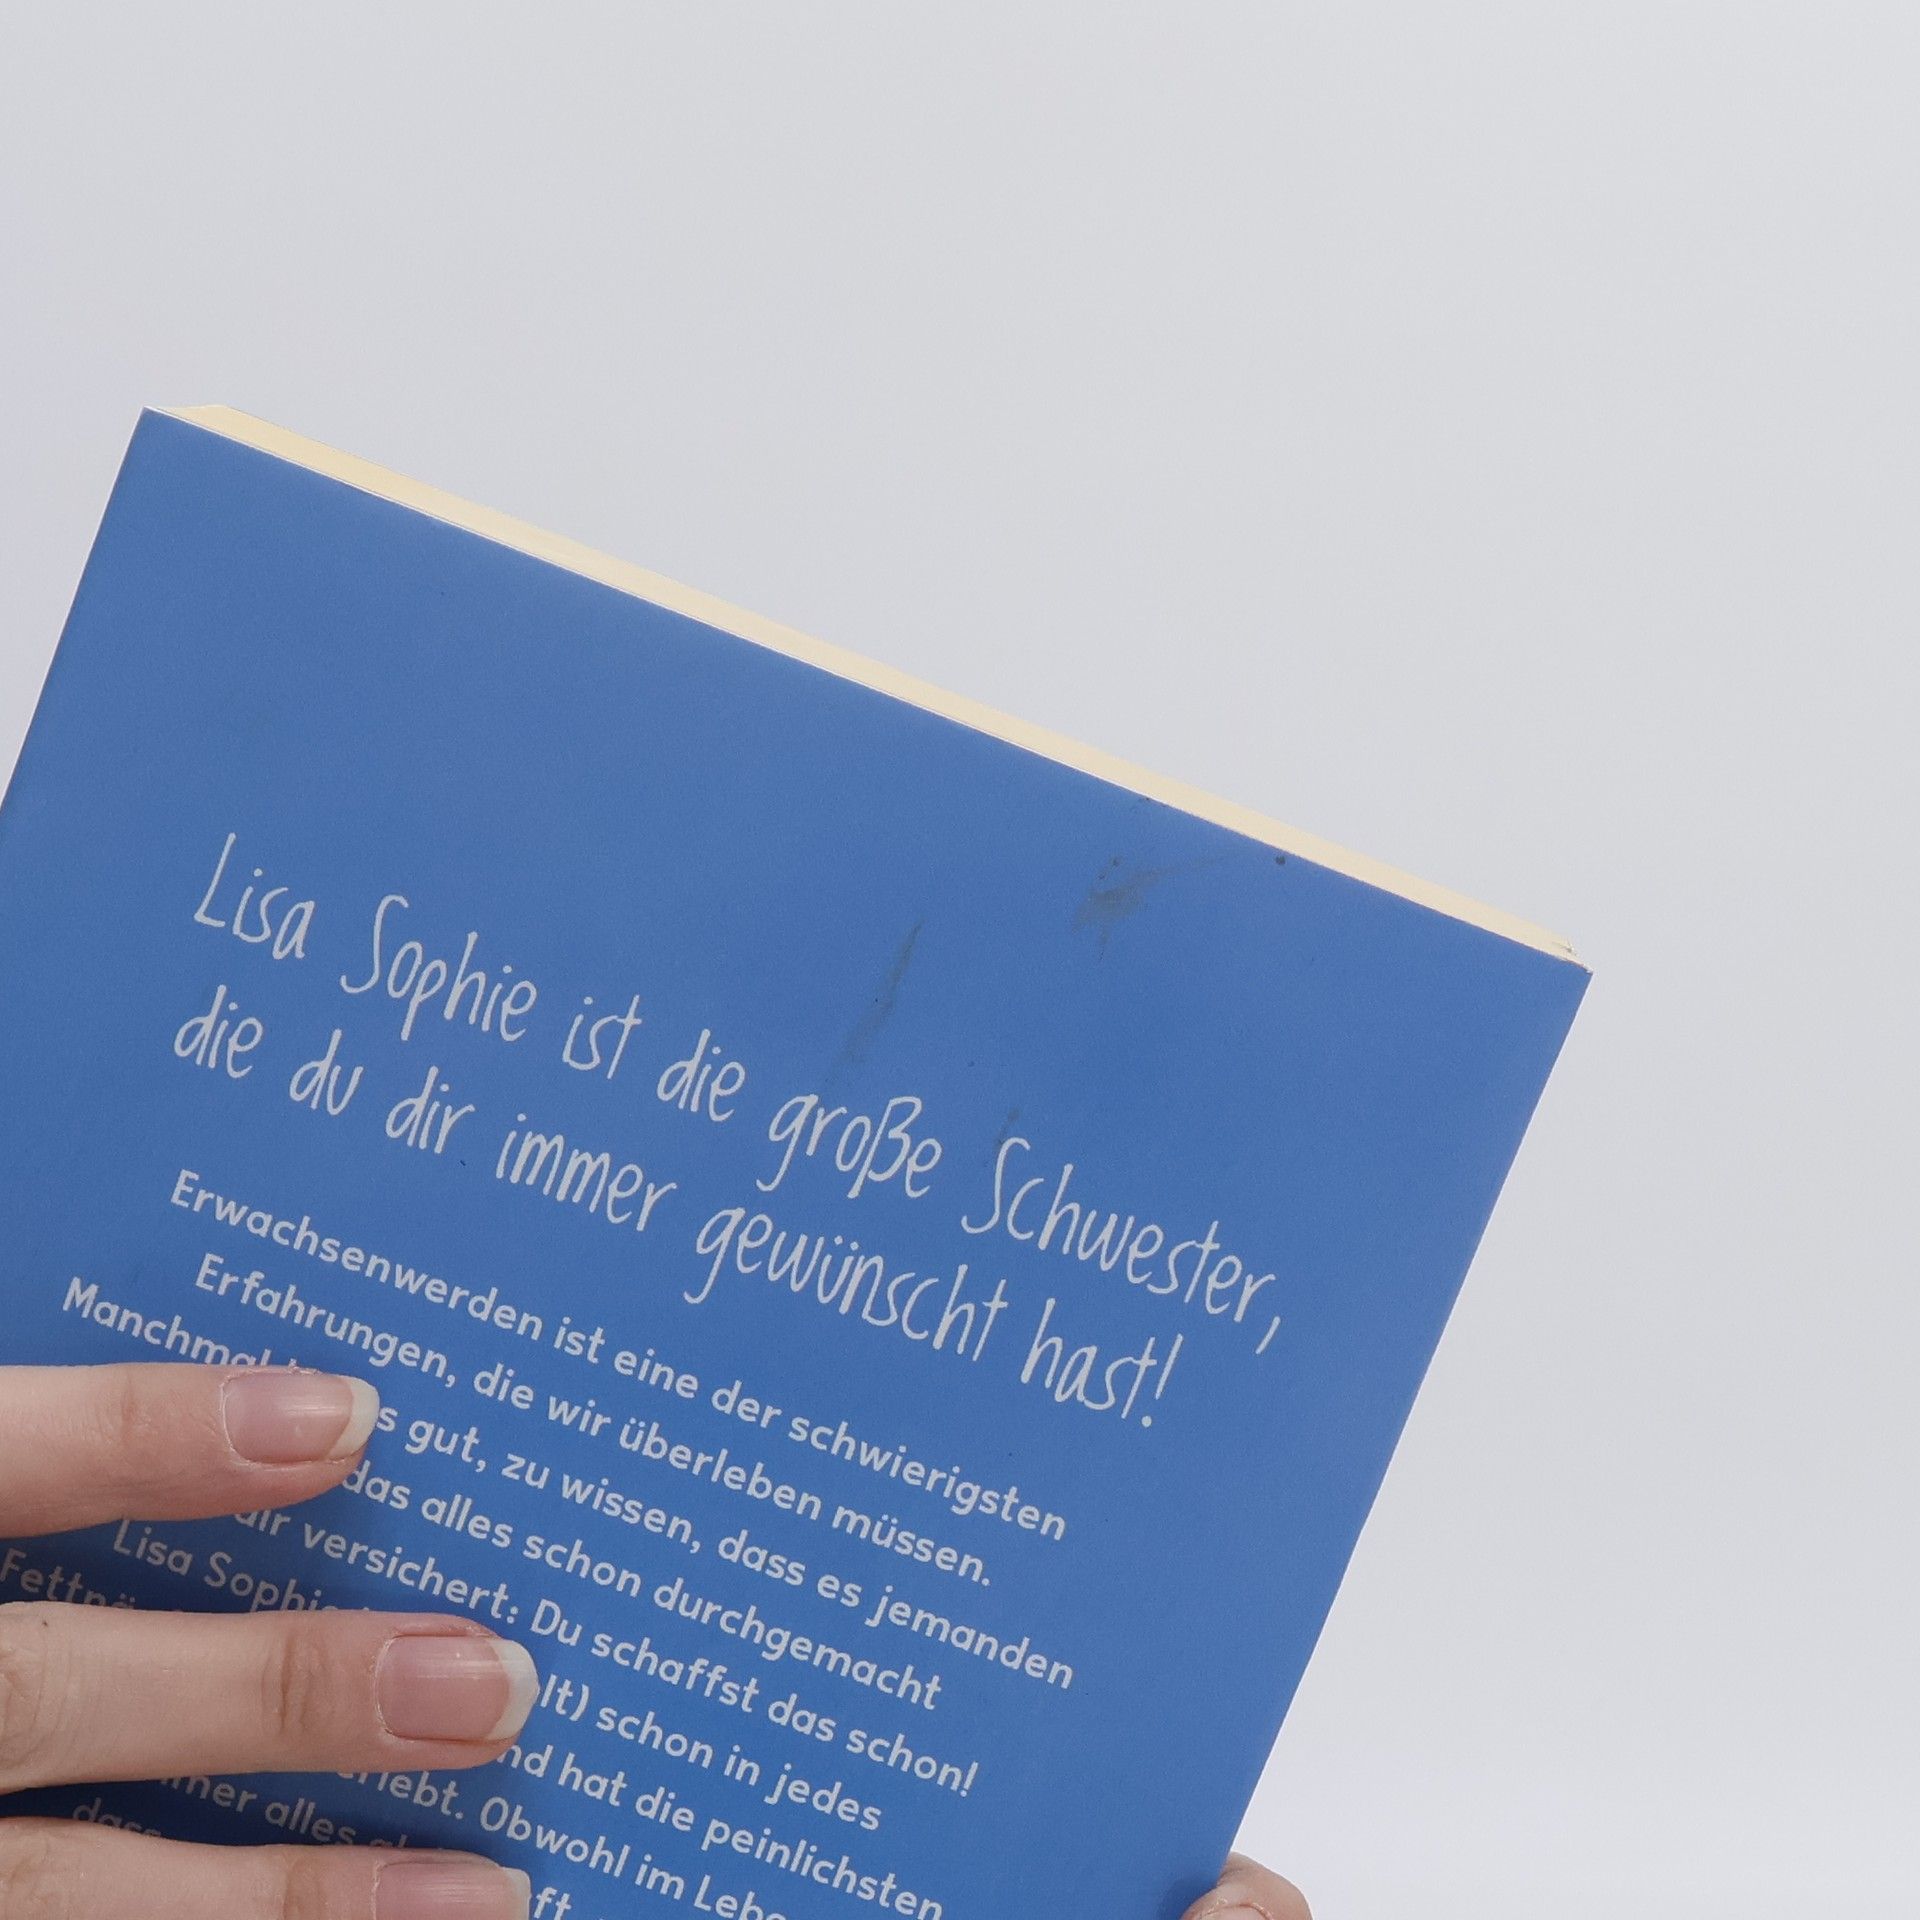 Lisa Sophie ist die große Schwester,
die du dir immer gewünscht hast!
Erwachsenwerden ist eine der schwierigsten
Erfahrungen, die wir überleben müssen.
Manchmal gut, zu wissen, dass es jemanden
das alles schon durchgemacht
dir versichert: Du schaffst das schon!
Lisa Sophie schon in jedes
hat die peinlichsten
Obwohl im
alles